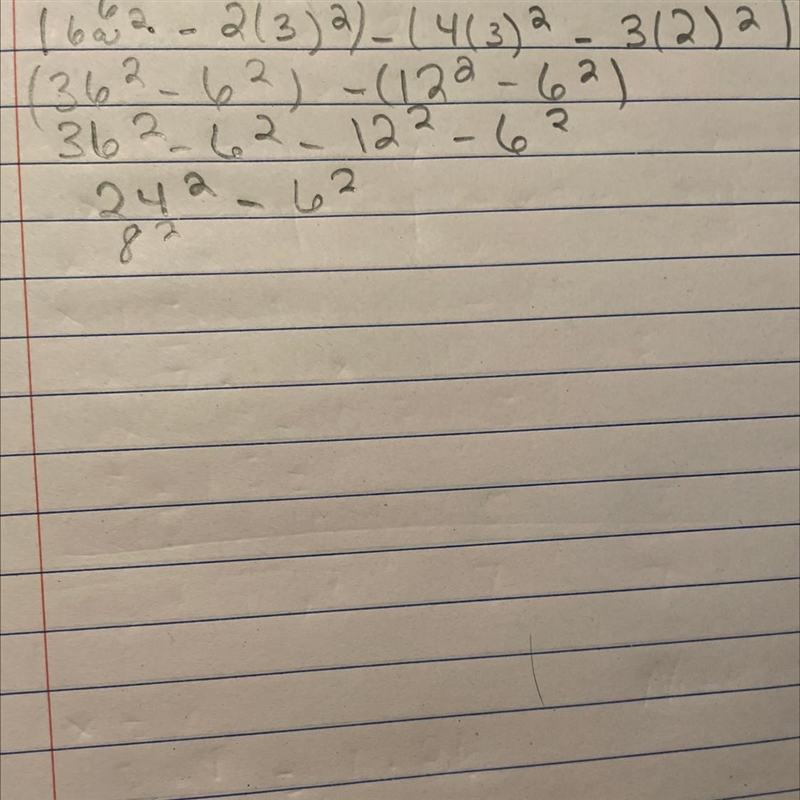 (6² - 2(3)²) - (4(3)² - 3(2)²)
(36² - 6²) - (12² - 6²)
36² - 6² - 12² - 6²
24² - 6²
8²